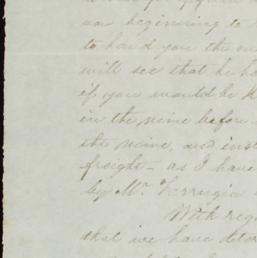 now beginning to
to hand you the
will see that he ha
if you would be
in the mine before
the mine, and inst
freight – as I have
by Mr. Ferrugia
With reg
that we have deter